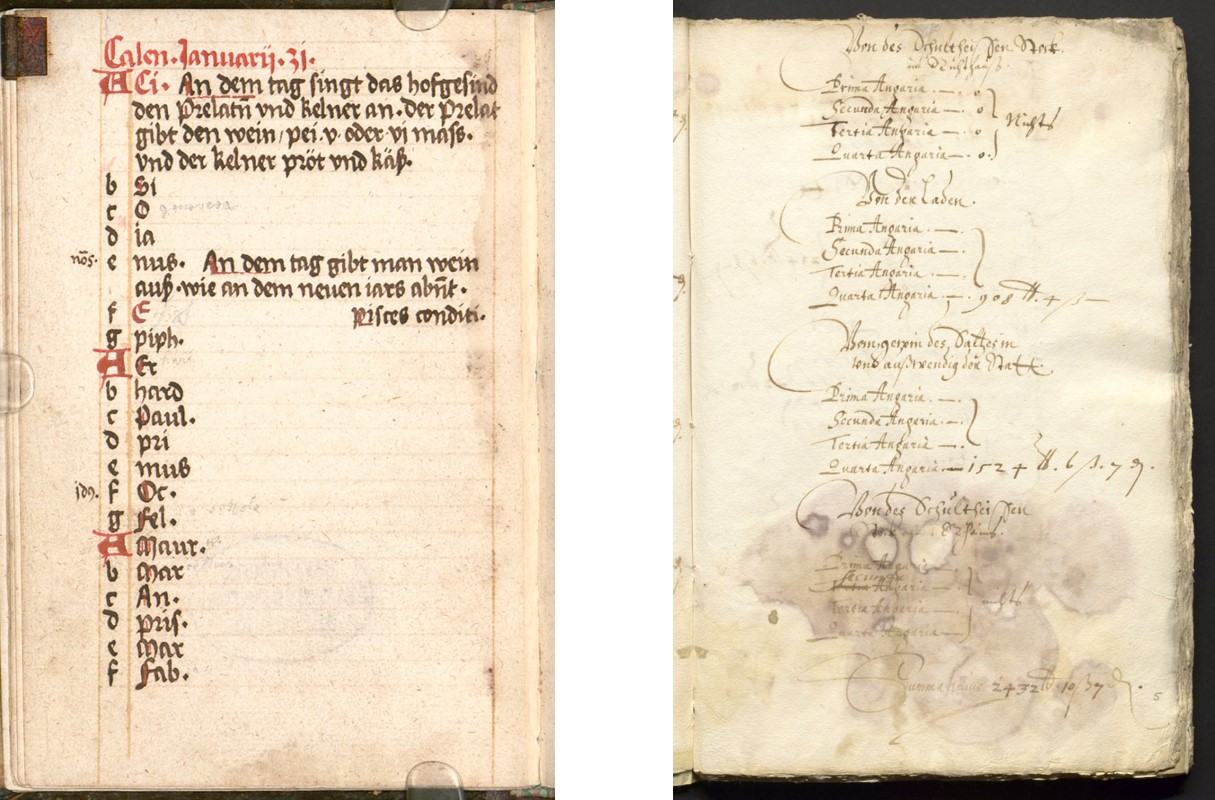 Calen. Januarij. 31.
A Ci. An dem tag singt das hofgesind
den Prelatn̄ vnd kelner an. der Prelat
gibt den wein/ pei. v. oder vi mass.
vnd der kelner pröt vnd käß.
b Si
c O
d ia
nōs. e nus. An dem tag gibt man wein
auß. wie an dem neuen iars abn̄t.
f E Pisces conditi.
g piph.
A Er
b hard
c Paul.
d pri
e mus
f Oc.
g Fel.
A Maur.
b Mar
c An.
d pris.
e Mar
f Fab.
Von des Schultheissen Stock.
Prima Angaria. — . o
Secunda Angaria — . o
Tertia Angaria — . o
Nichts
Quarta Angaria — . o.
Von der Laden.
Prima Angaria. — .
Secunda Angaria. — .
Tertia Angaria. — .
Quarta Angaria. — . 908 ℔. 4 ß —
Vom gewin des Saltzes in
vnd außwendig der Statt.
Prima Angaria. — .
Secunda Angaria. — .
Tertia Angaria — .
Quarta Angaria. — 1524 ℔. 6 ß. 7 ₰.
Von des Schultheissen
Prima Angaria
Secunda
Angaria
Tertia Angaria
nichts
Quarta Angaria
Summa 2432 ℔ 10 ß 7 ₰.
5